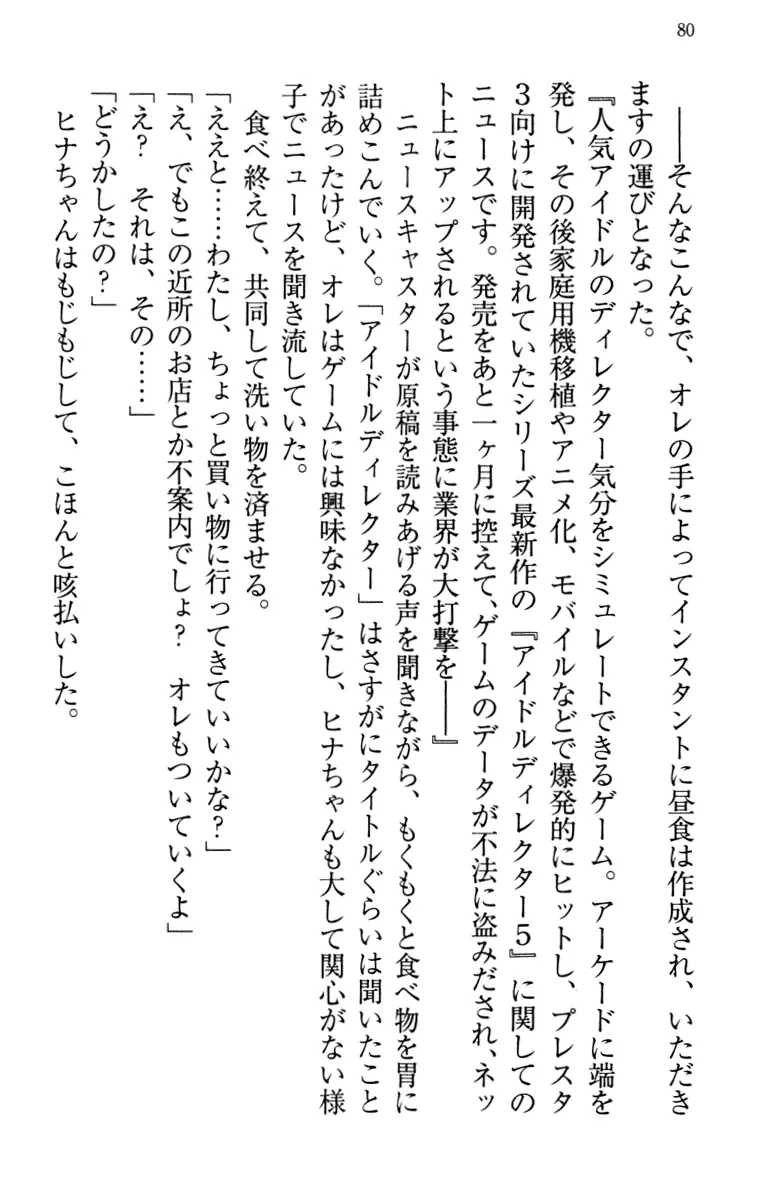 80
――そんなこんなで、オレの手によってインスタントに昼食は作成され、いただき
ますの運びとなった。
『人気アイドルのディレクター気分をシミュレートできるゲーム。アーケードに端を
発し、その後家庭用機移植やアニメ化、モバイルなどで爆発的にヒットし、プレスタ
3向けに開発されていたシリーズ最新作の『アイドルディレクター5』に関しての
ニュースです。発売をあと一ヶ月に控えて、ゲームのデータが不法に盗みだされ、ネッ
ト上にアップされるという事態に業界が大打撃を――』
ニュースキャスターが原稿を読みあげる声を聞きながら、もくもくと食べ物を胃に
詰めこんでいく。「アイドルディレクター」はさすがにタイトルぐらいは聞いたこと
があったけど、オレはゲームには興味なかったし、ヒナちゃんも大して関心がない様
子でニュースを聞き流していた。
食べ終えて、共同して洗い物を済ませる。
「ええと……わたし、ちょっと買い物に行ってきていいかな?」
「え、でもこの近所のお店とか不案内でしょ? オレもついていくよ」
「え? それは、その……」
「どうかしたの?」
ヒナちゃんはもじもじして、こほんと咳払いした。